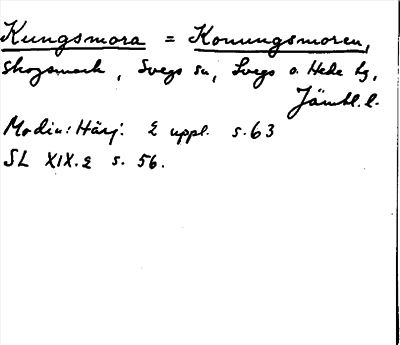 Kungsmora = Konungsmoren,
skogsmark, Svegs sn, Svegs o. Hede tg,
Jämtl. l.
Modin: Härj. 2 uppl. s. 63
SL XIX.2 s. 56.